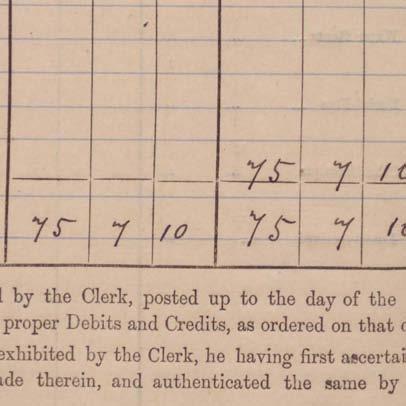 75 7 10
75 7 10 75 7 10
by the Clerk, posted up to the day of the
proper Debits and Credits, as ordered on that
exhibited by the Clerk, he having first ascertai
ade therein, and authenticated the same by